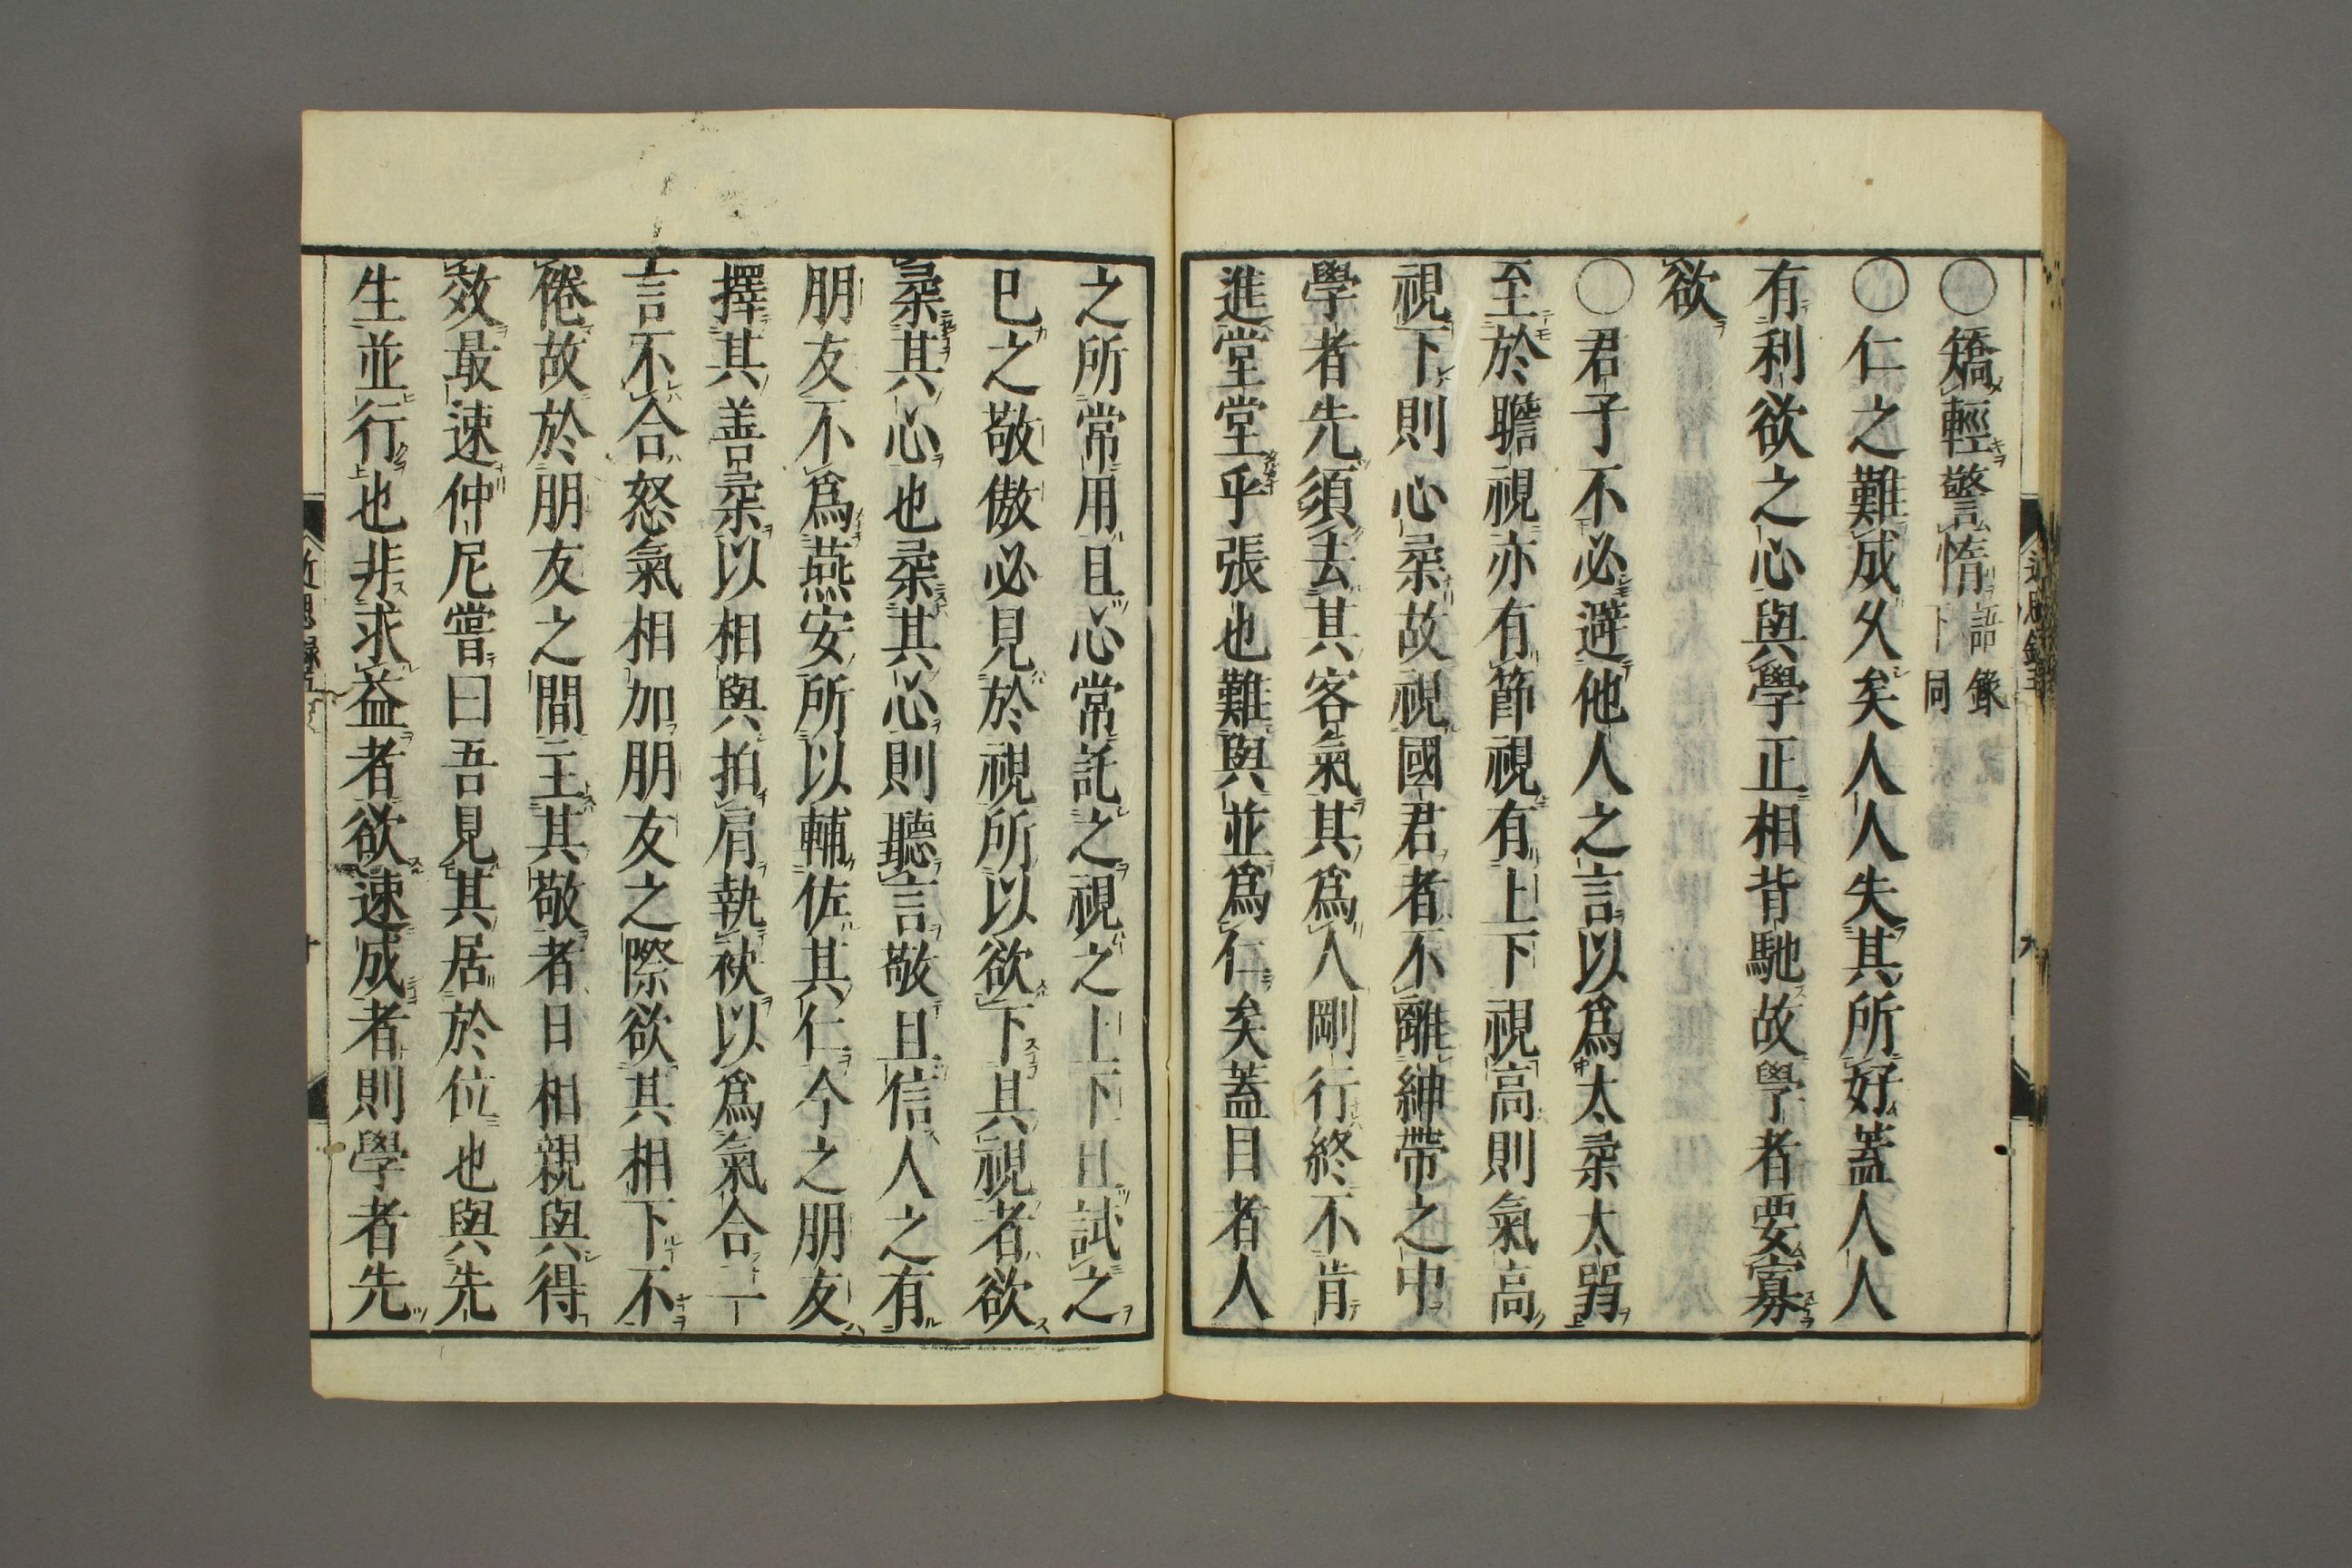 ○矯輕警惰語錄下同
○仁之難成久矣人人失其所好蓋人人
有利欲之心與學正相背馳故學者要寡
欲
○君子不必避他人之言以爲太柔太弱
至於瞻視亦有節視有上下視高則氣高
視下則心柔故視國君者不離紳帶之中
學者先須去其客氣其爲人剛行終不肯
進堂堂乎張也難與並爲仁矣蓋目者人
之所常用且心常託之視之上下且試之
已之敬傲必見於視所以欲下其視者欲
柔其心也柔其心則聽言敬且信人之有
朋友不爲燕安所以輔佐其仁今之朋友
擇其善柔以相與拍肩執袂以爲氣合一
言不合怒氣相加朋友之際欲其相下不
倦故於朋友之間主其敬者日相親與得
效最速仲尼嘗曰吾見其居於位也與先
生並行也非求益者欲速成者則學者先